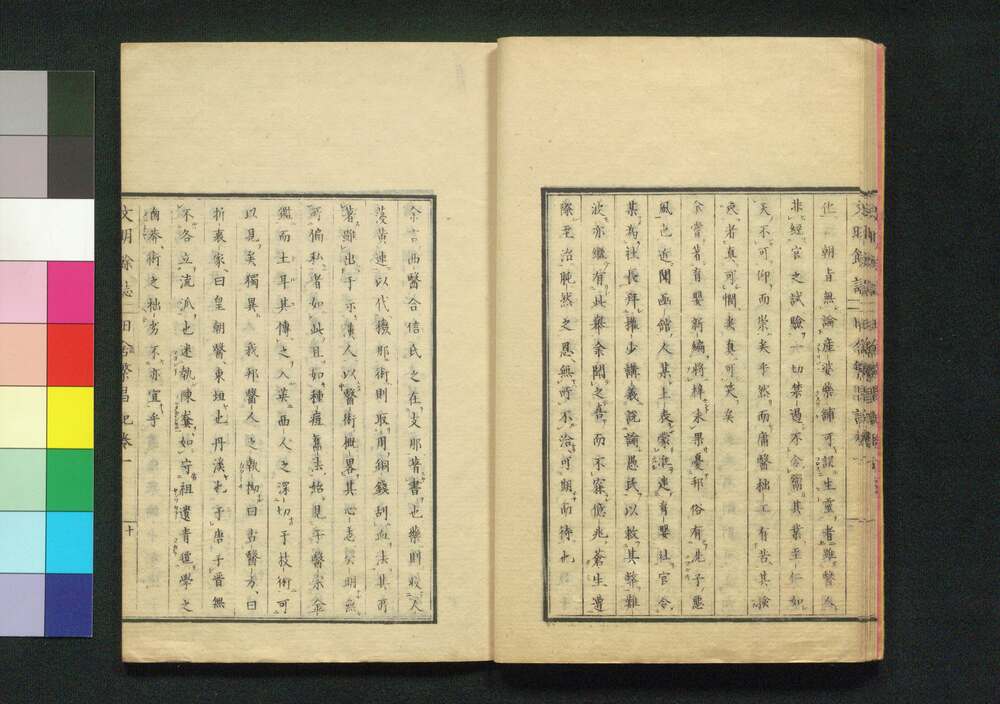 化一朝皆無論產婆藥鋪可誤生靈者雖醫
非經官之試驗一切禁遏不令鬻其業至仁如
天不可仰而崇矣乎然而庸醫拙工有苦其驗
者真可憫矣真可笑矣
余嘗著育嬰新編將梓未果憂邦俗有洗子惡
風也近聞西館人某上表蒙准建育嬰社官令
某為社長拜擢少講義說諭愚氓以救其弊難
波亦繼有此舉余聞之喜而不寐億兆蒼生遭
際至治肫然之恩無所不洽可期而待也
余言西醫合信氏之在支那著書也藥則取人
蓡黃連以代機那術則取用銅錢刮血法其所
著雖出于示漢人以醫術概畧其心志矣明無
可偏私者如此且如種痘舊法始見于醫宗金
鑑而土耳其傳之入英西人之深切于技術可
以見矣獨異我邦醫人之執拗曰古醫方曰
折衷家曰皇朝醫東垣也丹溪也于唐于晉無
不各立流派也迷執陳套如守祖遺青氊學之
鹵莽術之拙劣不亦宜乎
文明餘誌 田舍繁昌記卷一 十